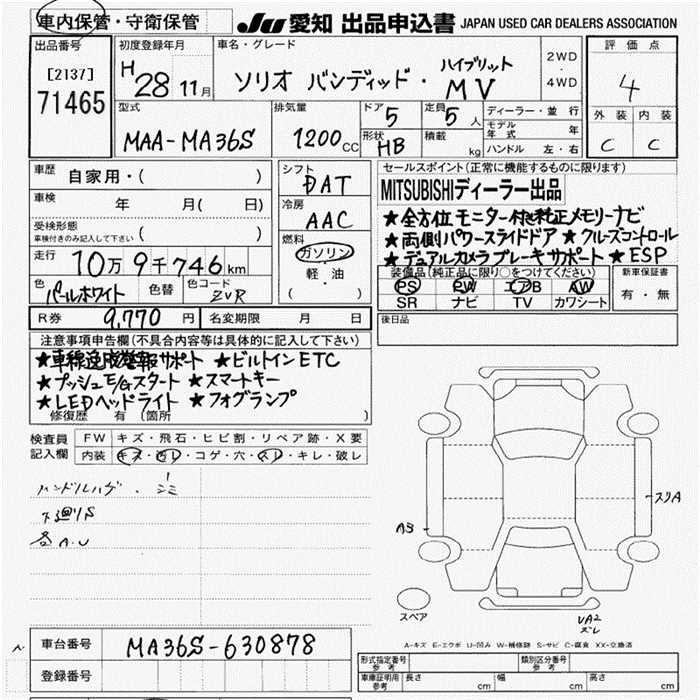 車内保管・守衛保管 JU 愛知 出品申込書 JAPAN USED CAR DEALERS ASSOCIATION
出品番号 初度登録年月 車名・グレード 2WD 評価点
[2137] H 28 11月 ソリオ バンディッド・ハイブリット MV ・ 4
71465 4WD
外装 内装
型式 排気量 ドア 5 定員 5人 ディーラー・並行
C C
MAA-MA36S 1200cc 形状 HB 積載 kg モデル年式 年
ハンドル 左・右
車歴 自家用・( ) シフト DAT セールスポイント(正常に機能するものに限ります)
MITSUBISHIディーラー出品
車検 年 月( 日) 冷房 AAC ★全方位モニター付き純正メモリーナビ
受検形態 ( ) ★両側パワースライドドア ★クルーズコントロール
車検付きのみ記入して下さい 燃料 ★デュアルカメラブレーキサポート ★ESP
走行 10万9千746km ガソリン 装備品(純正品に限り○をつけてください) 新車保証書
軽・油 PS PW エアB AW 有・無
色 パールホワイト 色替 色コード ZVR ( ) SR ナビ TV カワシート
R券 9,770円 名変期限 月 日 後日品
注意事項申告欄(不具合内容等は具体的に記入して下さい)
★車線逸脱警報サポート ★ビルトインETC
★プッシュE/Gスタート ★スマートキー
★LEDヘッドライト ★フォグランプ
修復歴 有 (箇所 )
検査員 FW キズ・飛石・ヒビ割・リペア跡・X要
記入欄 内装 キズ・汚レ・コゲ・穴・スレ・キレ・破レ
ハンドルハゲ・シミ
下廻りS
各A.U
スリA
AS
スペア
UA2
ズレ
A-キズ E-エクボ U-凹み W-補修跡 S-サビ C-腐食 XX-交換済
車台番号 MA36S-630878
登録番号
形式指定番号 参考 類別区分番号 参考
車庫証明用 参考 長さ cm 幅 cm 高さ cm